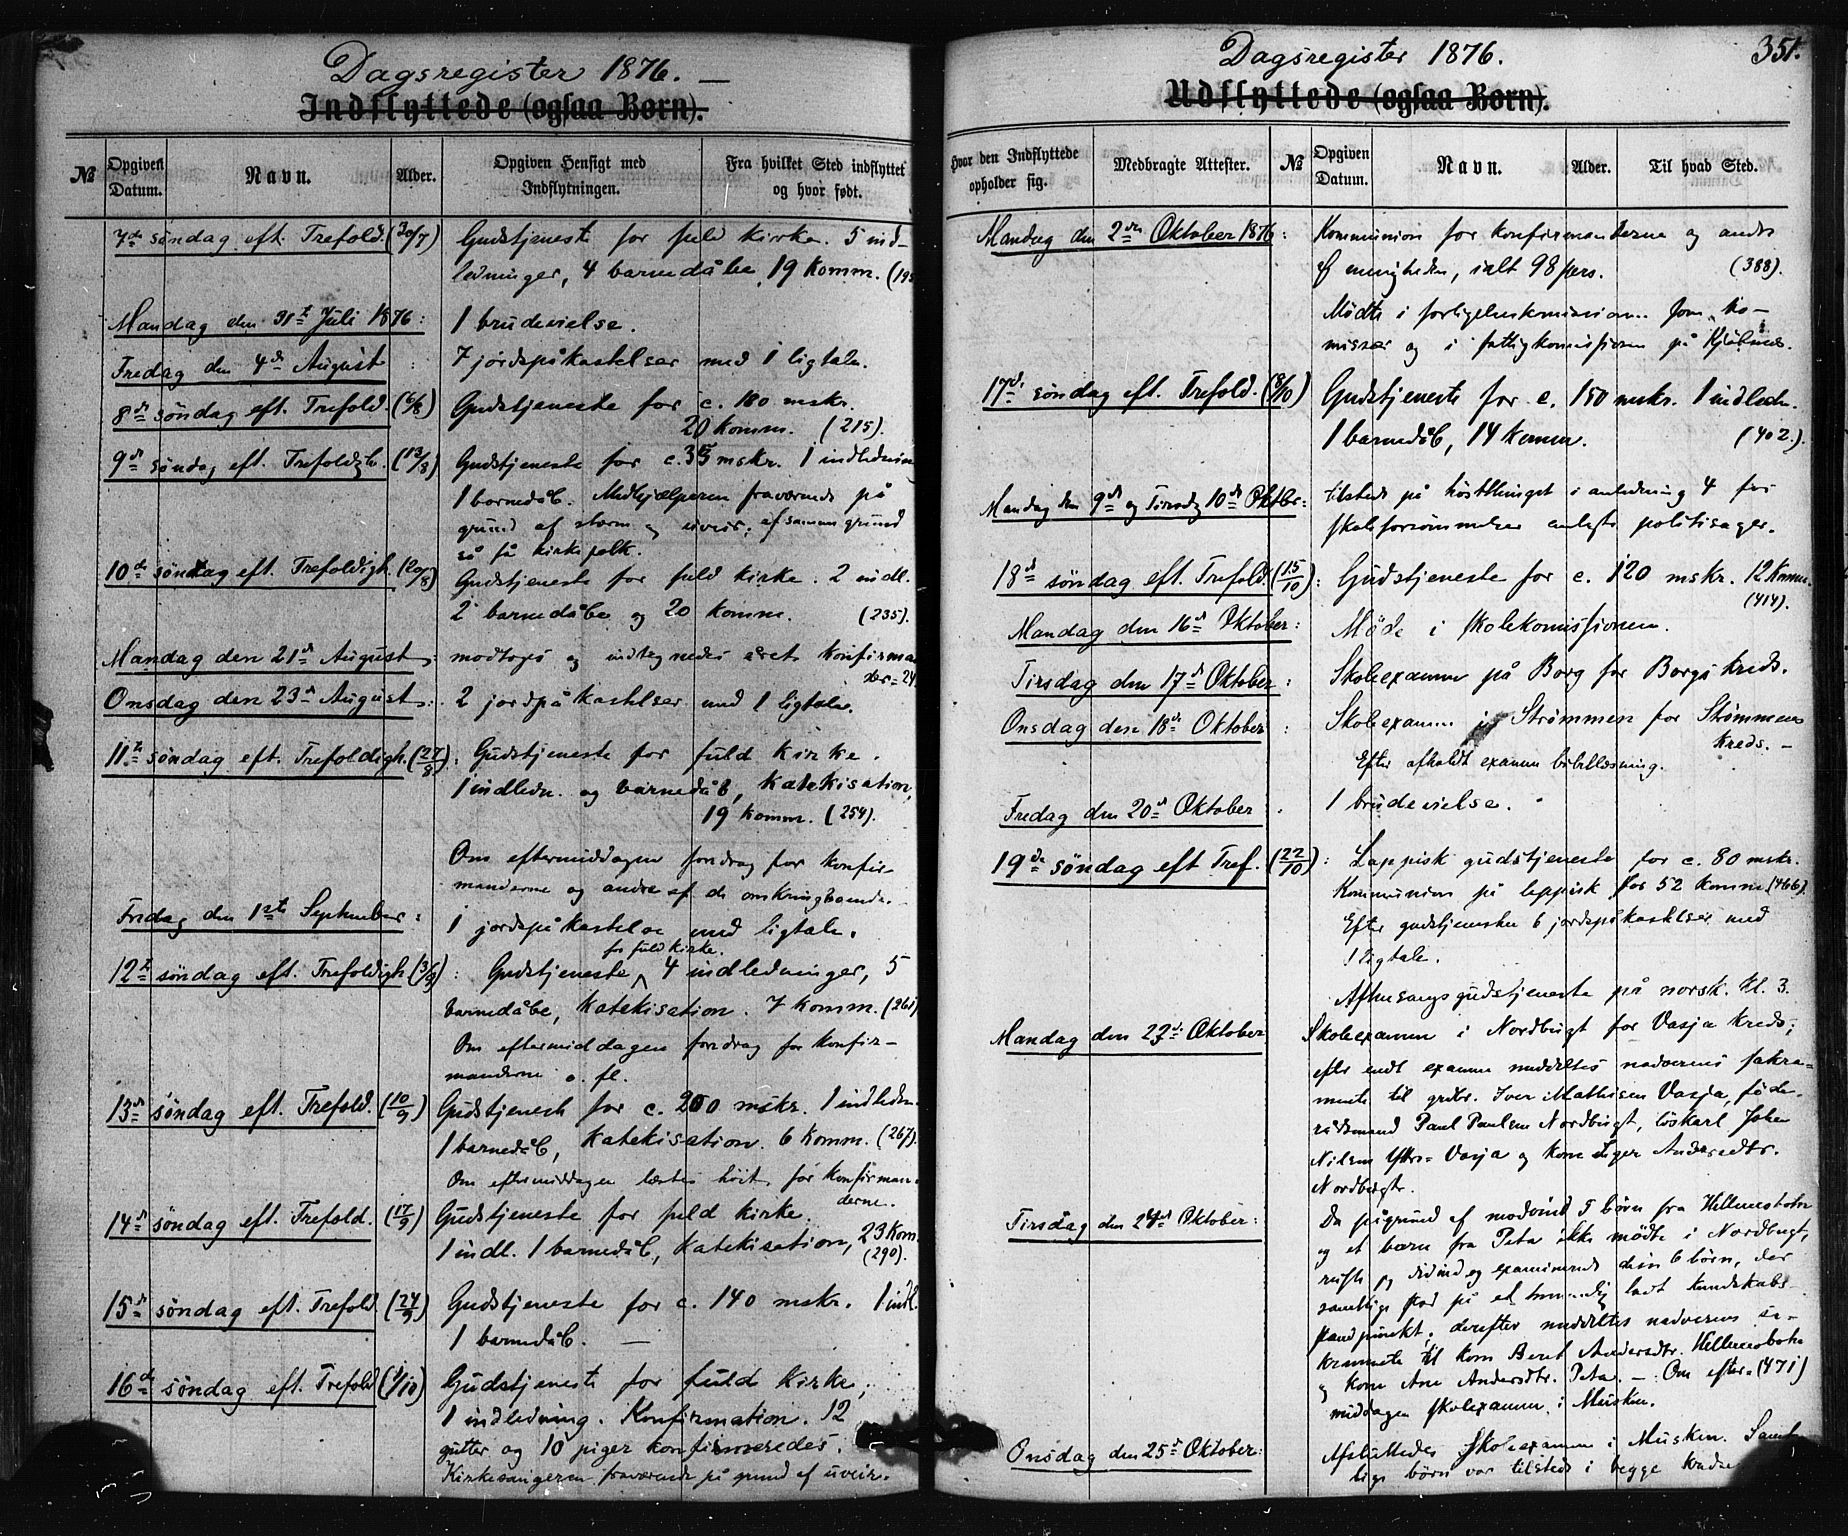 Dagsregister 1876. —
Indflyttede (ogsaa Børn).
№ Opgiven Datum. Navn. Alder. Opgiven Hensigt med Indflytningen. Fra hvilket Sted indflyttet og hvor født.
7de søndag eft. Trefold. (30/7) Gudstjeneste for fuld kirke. 5 ind-
ledninger, 4 barnedåbe, 19 komm. (195
Mandag den 31te Juli 1876: 1 brudevielse.
Fredag den 4de August : 7 jordspåkastelser med 1 ligtale.
8de søndag eft. Trefold. (6/8) Gudstjeneste for c. 180 mskr.
20 komm. (215).
9de søndag eft. Trefoldgh. (13/8) Gudstjeneste for c. 35 mskr. 1 indledning
1 barnedåb. Medhjælperen fraværende på
grund af storm og uveir; af samme grund
så få kirkefolk.
10de søndag eft. Trefoldigh. (20/8) Gudstjeneste for fuld kirke. 2 indl.
2 barnedåbe og 20 komm. (235).
Mandag den 21de August: modtoges og indtegnedes årets konfirman
der = 24
Onsdag den 23de August: 2 jordpåkastelser med 1 ligtale.
11te søndag eft. Trefoldigh. (27/8): Gudstjeneste for fuld kirke.
1 indledn. og barnedåb, katekisation,
19 komm. (254).
Om eftermiddagen foredrag for konfir-
manderne og andre af de omkringboende.
Fredag den 1ste September: 1 jordpåkastelse med ligtale.
12te søndag eft. Trefoldigh (3/9): Gudstjeneste for fuld kirke. 4 indledninger, 5
barnedåbe, katekisation. 7 komm. (261)
Om eftermiddagen foredrag for konfir-
manderne o. fl.
13de søndag eft. Trefold. (10/9) Gudstjeneste for c. 200 mskr. 1 indledn.
1 barnedåb, katekisation. 6 komm. (267).
Om eftermiddagen læstes høit for konfirman-
derne.
14de søndag eft. Trefold. (17/9) Gudstjeneste for fuld kirke.
1 indl. 1 barnedåb, katekisation, 23 kom.
(290).
15de søndag eft. Trefold (24/9) Gudstjeneste for c. 140 mskr. 1 indl.
1 barnedåb. —
16de søndag eft. Trefold (1/10) Gudstjeneste for fuld kirke;
1 indledning. Konfirmation. 12
gutter og 10 piger konfirmeredes.
Kirkesangeren fraværende på grund af uveir.
Dagsregister 1876. 351.
Udflyttede (ogsaa Børn).
Hvor den Indflyttede opholder sig. Medbragte Attester. № Opgiven Datum. Navn. Alder. Til hvad Sted.
Mandag den 2den Oktober 1876: Kommunion for konfirmanterne og andre
af menigheden, ialt 98 pers. (388).
Mødte i forligelseskomissionen som ko-
missær og i fattigkomissionen på Kjøbsnes.
17de søndag eft. Trefold. (8/10) Gudstjeneste for c. 150 mskr. 1 indledn.
1 barnedåb, 14 komm. (402.)
Mandag den 9de og Tirsdg 10de Oktbr: tilstede på høstthinget i anledning 4 for
skoleforsømmelser anlagte politisager.
18de søndag eft. Trefold. (15/10): Gudstjeneste for c. 120 mskr. 12 komm.
(414).
Mandag den 16de Oktober: Møde i skolekomissionen.
Tirsdag den 17de Oktober: Skoleexamen på Borg for Borgs kreds.
Onsdag den 18de Oktober: Skoleexamen på Strømmen for Strømmens
kreds. —
Efter afholdt examen bibellæsning.
Fredag den 20de Oktober: 1 brudevielse.
19de søndag eft Tref. (22/10): Lappisk gudstjeneste for c. 80 mskr.
Kommunion på lappisk for 52 komm (466)
Efter gudstjenesten 6 jordspåkastelser med
1 ligtale.
Aftensangsgudstjeneste på norsk. kl. 3.
Mandag den 23de Oktober Skoleexamen i Nordbugt for Vasja kreds;
efter endt examen meddeltes nadverens sakra-
mente til grdbr. Iver Mathisen Vasja, føde-
rådsmand Paul Paulsen Nordbugt, løskarl Johan
Nilsen Ytre-Vasja og kone Inger Andersdtr.
Nordbugt.
Tirsdag den 24de Oktober: Da på grund af modvind 5 børn fra Hellemobotn
og et barn fra Peta ikke mødte i Nordbugt,
reiste jeg didind og examinerede disse 6 børn, der
samtlige stod på et lavt kundskabs-
standpunkt; derefter meddeltes nadverens sa-
kramente til kone Beret Andersdtr. Hellemobotn
og kone Ane Andersdtr. Peta. — Om efter- (471)
middagen skoleexamen i Musken.
Onsdag den 25de Oktober: Afsluttedes skoleexamen i Musken. Samt-
lige børn var tilstede i begge kredse